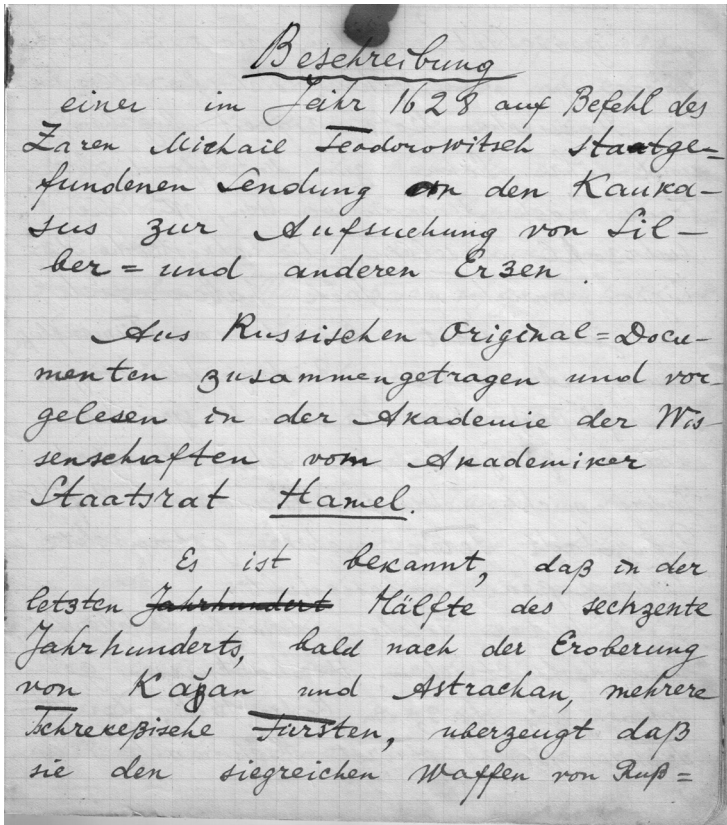 Beschreibung
einer im Jahr 1628 auf Befehl des
Zaren Michail Feodorowitsch stattge=
fundenen Sendung an den Kauka-
sus zur Aufsuchung von Sil-
ber= und anderen Erzen.
Aus Russischen Original=Docu-
menten zusammengetragen und vor-
gelesen in der Akademie der Wis-
senschaften vom Akademiker
Staatsrat Hamel.
Es ist bekannt, daß in der
letzten Jahrhundert Hälfte des sechzente
Jahrhunderts, bald nach der Eroberung
von Kazan und Astrachan, mehrere
Tschrekeßische Fürsten, uberzeugt daß
sie den siegreichen Waffen von Ruß=